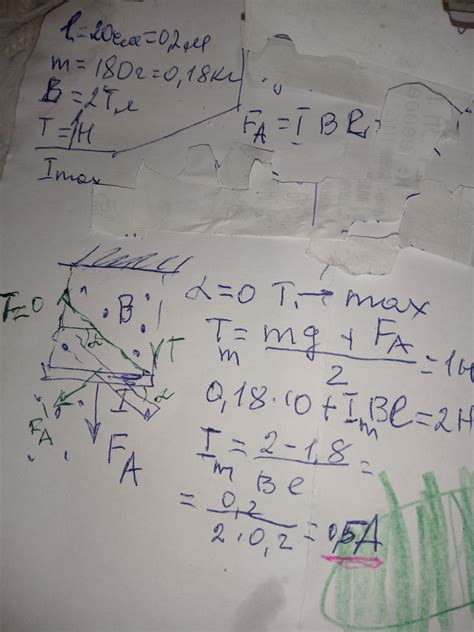 l=20см=0,2м
m=180г=0,18кг
B=2Тл
T=1Н
I max
F_A=I B l
T=0
B
α
T
α
I
F_A
F_A
α=0 T → max
T_m = (mg + F_A)/2 = 1Н
0,18·10+I_m Bl=2Н
I_m = (2-1,8)/(Bl) =
= 0,2/(2·0,2) = 0,5А